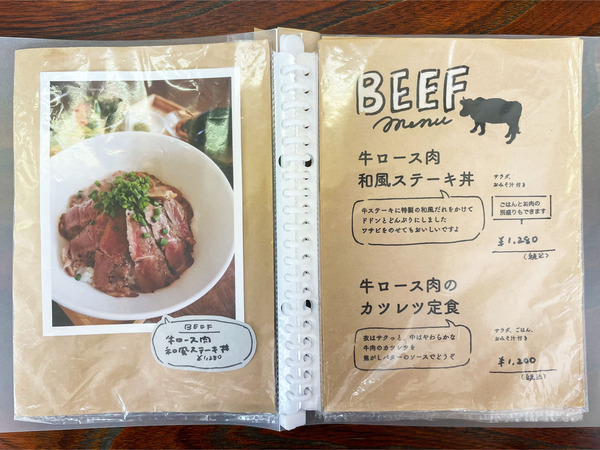 BEEF
牛ロース肉
和風ステーキ丼
¥1,280
BEEF
menu
牛ロース肉
和風ステーキ丼
サラダ、
おみそ汁付き
牛ステーキに特製の和風だれをかけて
ドドンとどんぶりにしました
ワサビをのせてもおいしいですよ
ごはんとお肉の
別盛りもできます
¥1,280
(税込)
牛ロース肉の
カツレツ定食
サラダ、ごはん、
おみそ汁付き
衣はサクっと、中はやわらかな
牛肉のカツレツを
焦がしバターのソースでどうぞ
¥1,200
(税込)